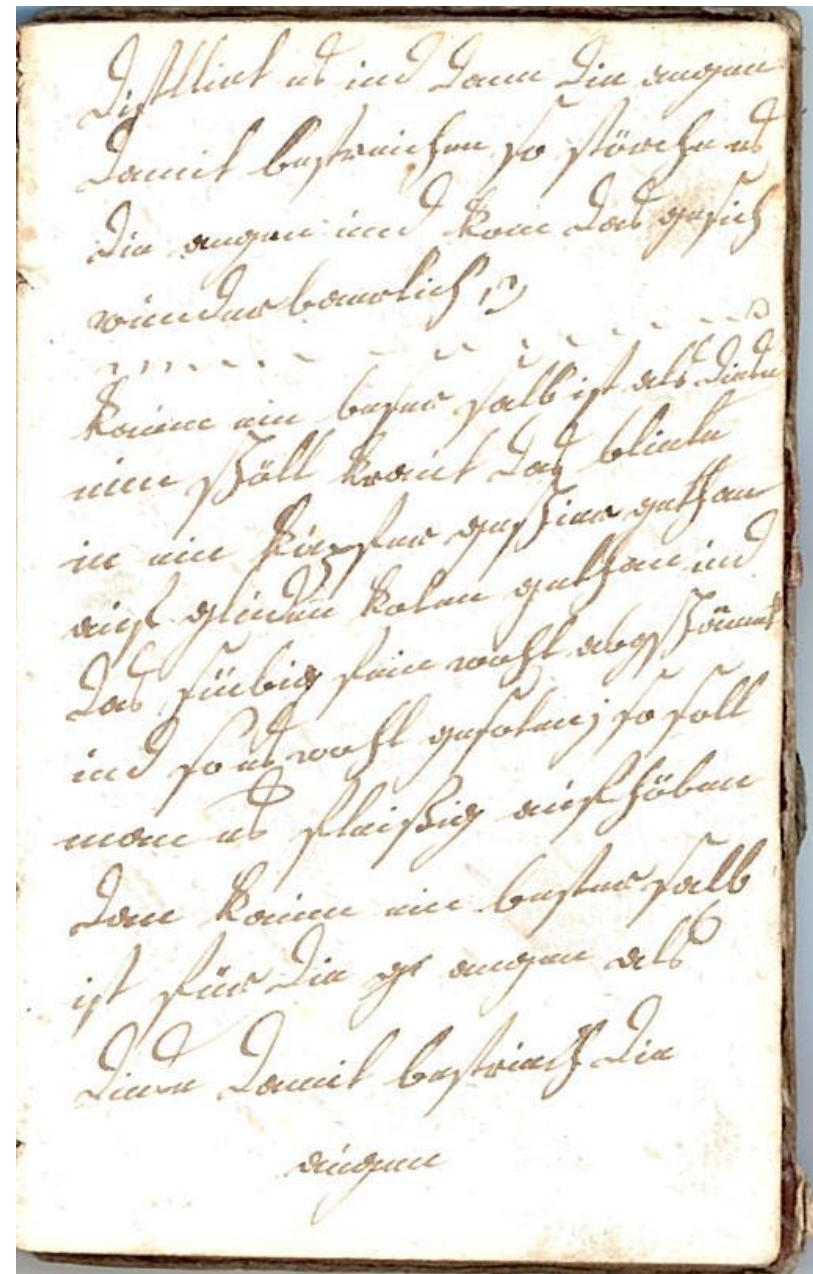 Distlliert es und dann die augen
damit bestreichen so störche es
die augen und kom das gesich
wunderbaarlich
kainn ein beser salb ist als diese
nim schöll kraut das bliele
in ein kupfer geschier gethan
auf glieden kolen gethan und
das fein wohl abgschäumet
und so es wohl gesoten; so soll
man es fleißig aufhöben
dan kainn ein bester salb
ist für die gs augen als
diese damit bestreich die
augen